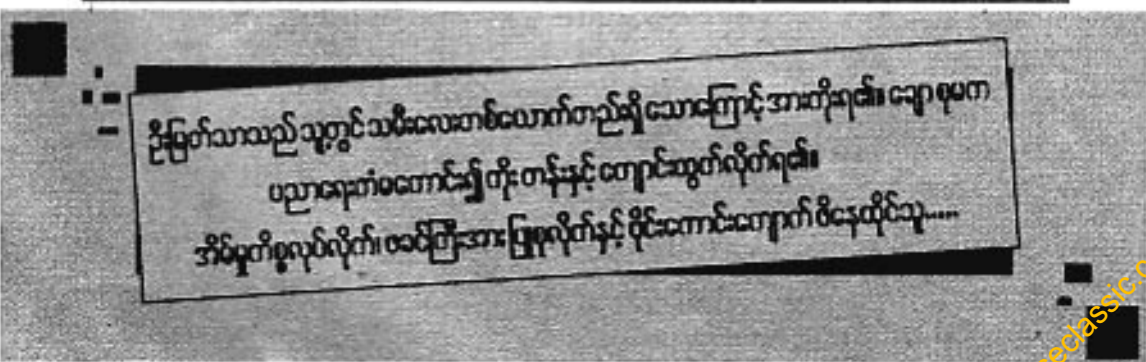 ဦးမြတ်သာသည် သူ့တွင် သမီးလေးတစ်ယောက်တည်းရှိ သောကြောင့် အားကိုးရ၏။ ချော စုမက
ပညာရေးကံမကောင်း၍ ကိုး တန်းနှင့် ကျောင်းထွက်လိုက်ရ၏။
အိမ်မှုကိစ္စလုပ်လိုက်၊ ဖခင်ကြီးအား ပြုစုလိုက်နှင့် ဝိုင်းကောင်းကျောက် ဖိနေထိုင်သူ.....